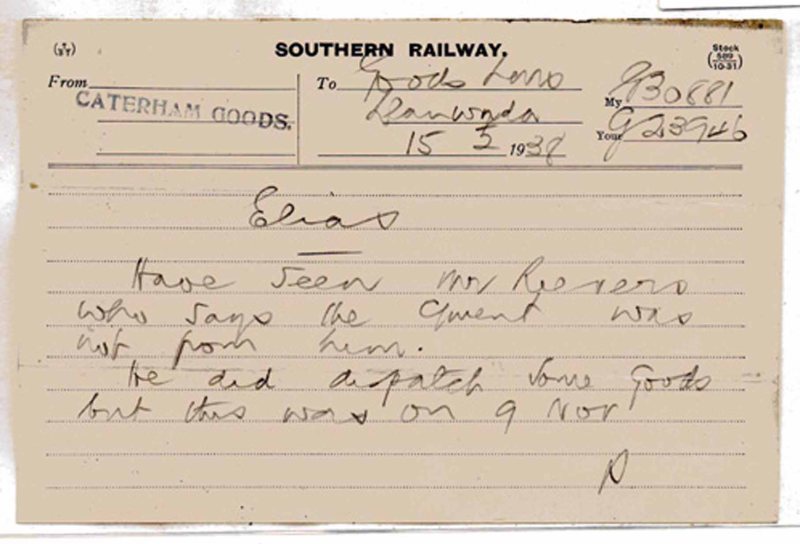 SOUTHERN RAILWAY.
Stock
589
(10-31)
From
CATERHAM GOODS.
To Goods
Llanwnda
15 5 1938
My G30881
Your G23946
Elias
Have seen Mr Reevers
who says the Cment was
not from him.
He did dispatch some goods
but this was on 9 Nov